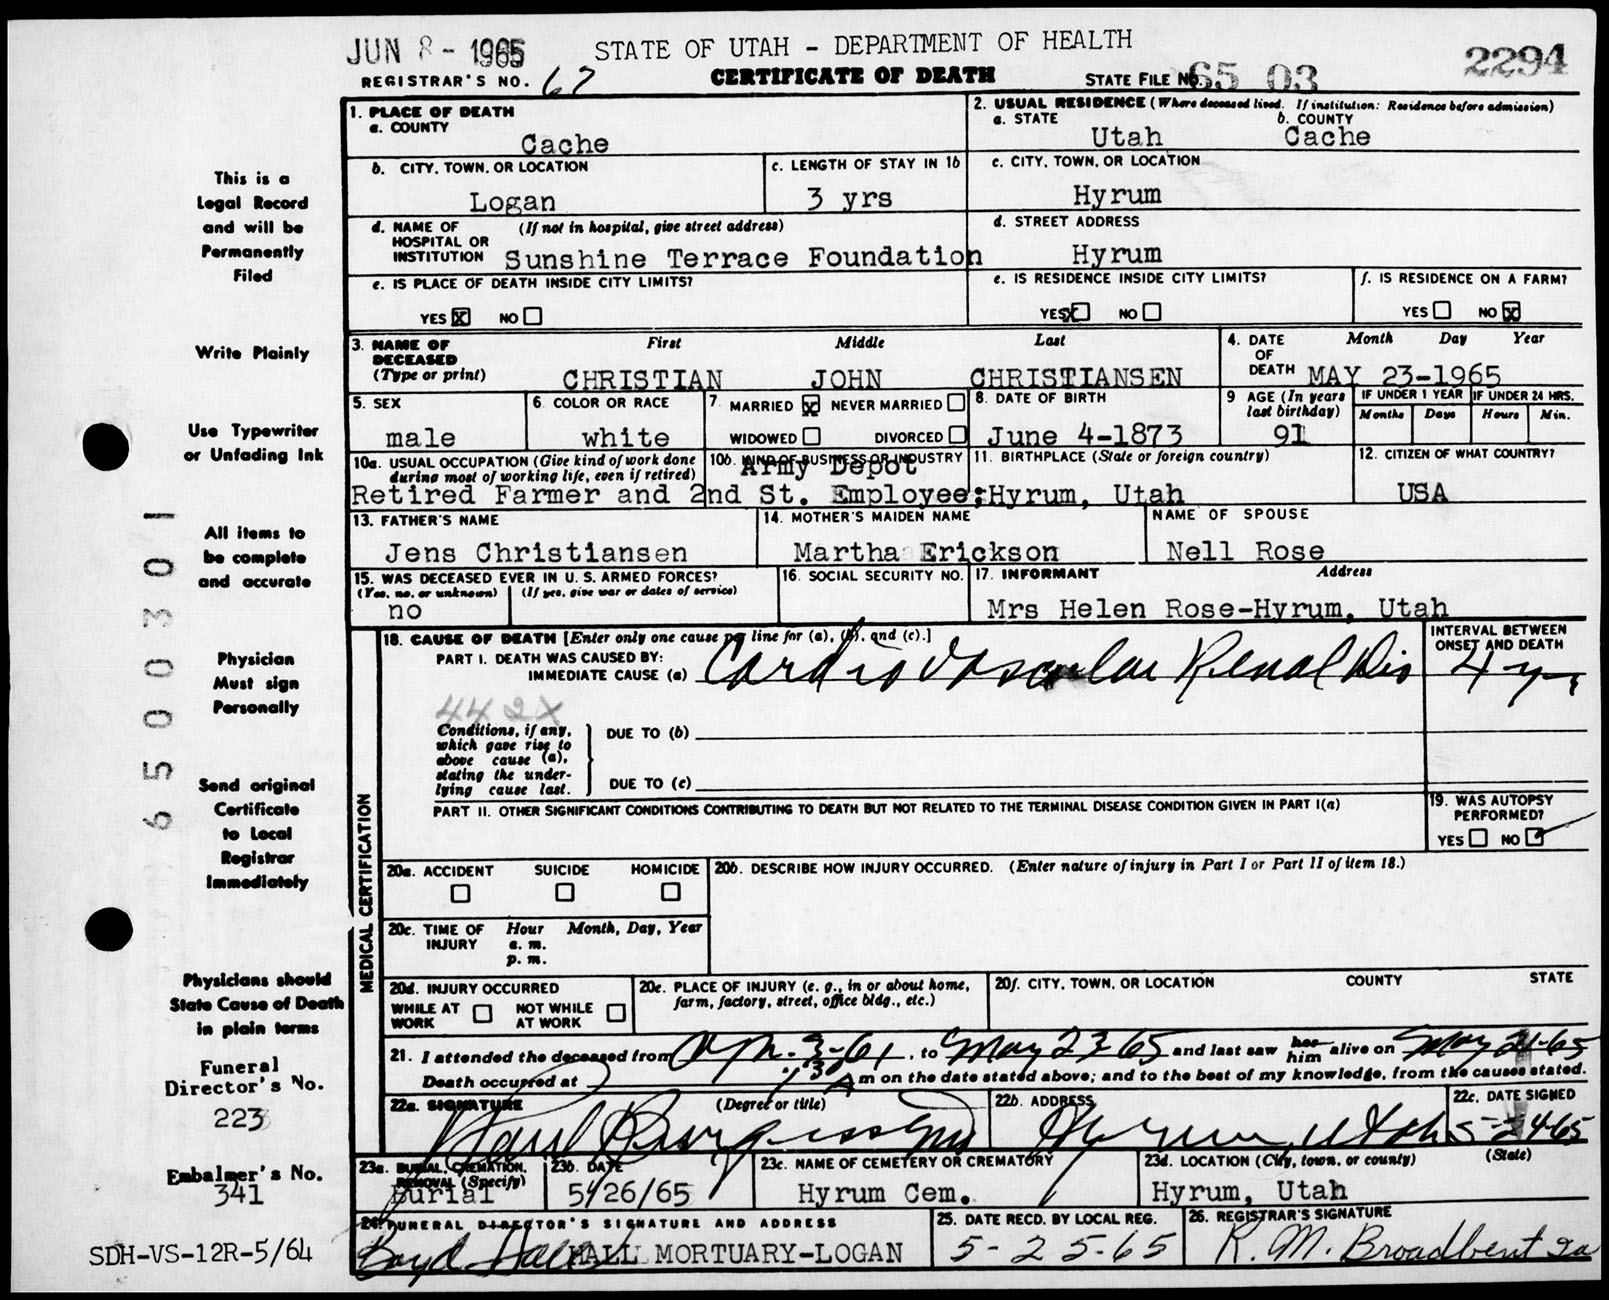 JUN 8 - 1965 STATE OF UTAH - DEPARTMENT OF HEALTH 2294
REGISTRAR'S NO. 67 CERTIFICATE OF DEATH STATE FILE NO. 65 03
1. PLACE OF DEATH
a. COUNTY
Cache
2. USUAL RESIDENCE (Where deceased lived. If institution: Residence before admission)
a. STATE b. COUNTY
Utah Cache
b. CITY, TOWN, OR LOCATION
Logan
c. LENGTH OF STAY IN 1b
3 yrs
c. CITY, TOWN, OR LOCATION
Hyrum
d. NAME OF (If not in hospital, give street address)
HOSPITAL OR
INSTITUTION Sunshine Terrace Foundation
d. STREET ADDRESS
Hyrum
e. IS PLACE OF DEATH INSIDE CITY LIMITS?
YES X NO
e. IS RESIDENCE INSIDE CITY LIMITS?
YES X NO
f. IS RESIDENCE ON A FARM?
YES NO X
3. NAME OF First Middle Last
DECEASED
(Type or print) CHRISTIAN JOHN CHRISTIANSEN
4. DATE Month Day Year
OF
DEATH MAY 23-1965
5. SEX
male
6. COLOR OR RACE
white
7. MARRIED X NEVER MARRIED
WIDOWED DIVORCED
8. DATE OF BIRTH
June 4-1873
9 AGE (In years
last birthday)
91
IF UNDER 1 YEAR IF UNDER 24 HRS.
Months Days Hours Min.
10a. USUAL OCCUPATION (Give kind of work done
during most of working life, even if retired)
10b. KIND OF BUSINESS OR INDUSTRY
Army Depot
Retired Farmer and 2nd St. Employee;
11. BIRTHPLACE (State or foreign country)
Hyrum, Utah
12. CITIZEN OF WHAT COUNTRY?
USA
13. FATHER'S NAME
Jens Christiansen
14. MOTHER'S MAIDEN NAME
Martha Erickson
NAME OF SPOUSE
Nell Rose
15. WAS DECEASED EVER IN U. S. ARMED FORCES?
(Yes, no, or unknown) (If yes, give war or dates of service)
no
16. SOCIAL SECURITY NO.
17. INFORMANT Address
Mrs Helen Rose-Hyrum, Utah
MEDICAL CERTIFICATION
18. CAUSE OF DEATH [Enter only one cause per line for (a), (b), and (c).]
PART I. DEATH WAS CAUSED BY:
IMMEDIATE CAUSE (a) Cardio Vascular Renal Dis
INTERVAL BETWEEN
ONSET AND DEATH
4 yrs
442X
Conditions, if any,
which gave rise to
above cause (a),
stating the under-
lying cause last.
DUE TO (b)
DUE TO (c)
PART II. OTHER SIGNIFICANT CONDITIONS CONTRIBUTING TO DEATH BUT NOT RELATED TO THE TERMINAL DISEASE CONDITION GIVEN IN PART I(a)
19. WAS AUTOPSY
PERFORMED?
YES NO ✓
20a. ACCIDENT SUICIDE HOMICIDE
20b. DESCRIBE HOW INJURY OCCURRED. (Enter nature of injury in Part I or Part II of item 18.)
20c. TIME OF Hour Month, Day, Year
INJURY a. m.
p. m.
20d. INJURY OCCURRED
WHILE AT NOT WHILE
WORK AT WORK
20e. PLACE OF INJURY (e. g., in or about home,
farm, factory, street, office bldg., etc.)
20f. CITY, TOWN, OR LOCATION COUNTY STATE
21. I attended the deceased from Apr. 3-61, to May 23 65 and last saw her him alive on May 21-65
Death occurred at 1:30 A m on the date stated above; and to the best of my knowledge, from the causes stated.
22a. SIGNATURE (Degree or title)
Paul Burgess MD
22b. ADDRESS
Hyrum, Utah
22c. DATE SIGNED
5-24-65
23a. BURIAL, CREMATION,
REMOVAL (Specify)
Burial
23b. DATE
5/26/65
23c. NAME OF CEMETERY OR CREMATORY
Hyrum Cem.
23d. LOCATION (City, town, or county) (State)
Hyrum, Utah
24. FUNERAL DIRECTOR'S SIGNATURE AND ADDRESS
Boyd Hall HALL MORTUARY-LOGAN
25. DATE RECD. BY LOCAL REG.
5-25-65
26. REGISTRAR'S SIGNATURE
R. M. Broadbent
This is a
Legal Record
and will be
Permanently
Filed
Write Plainly
Use Typewriter
or Unfading Ink
All items to
be complete
and accurate
Physician
Must sign
Personally
Send original
Certificate
to Local
Registrar
Immediately
Physicians should
State Cause of Death
in plain terms
Funeral
Director's No.
223
Embalmer's No.
341
SDH-VS-12R-5/64
6500301